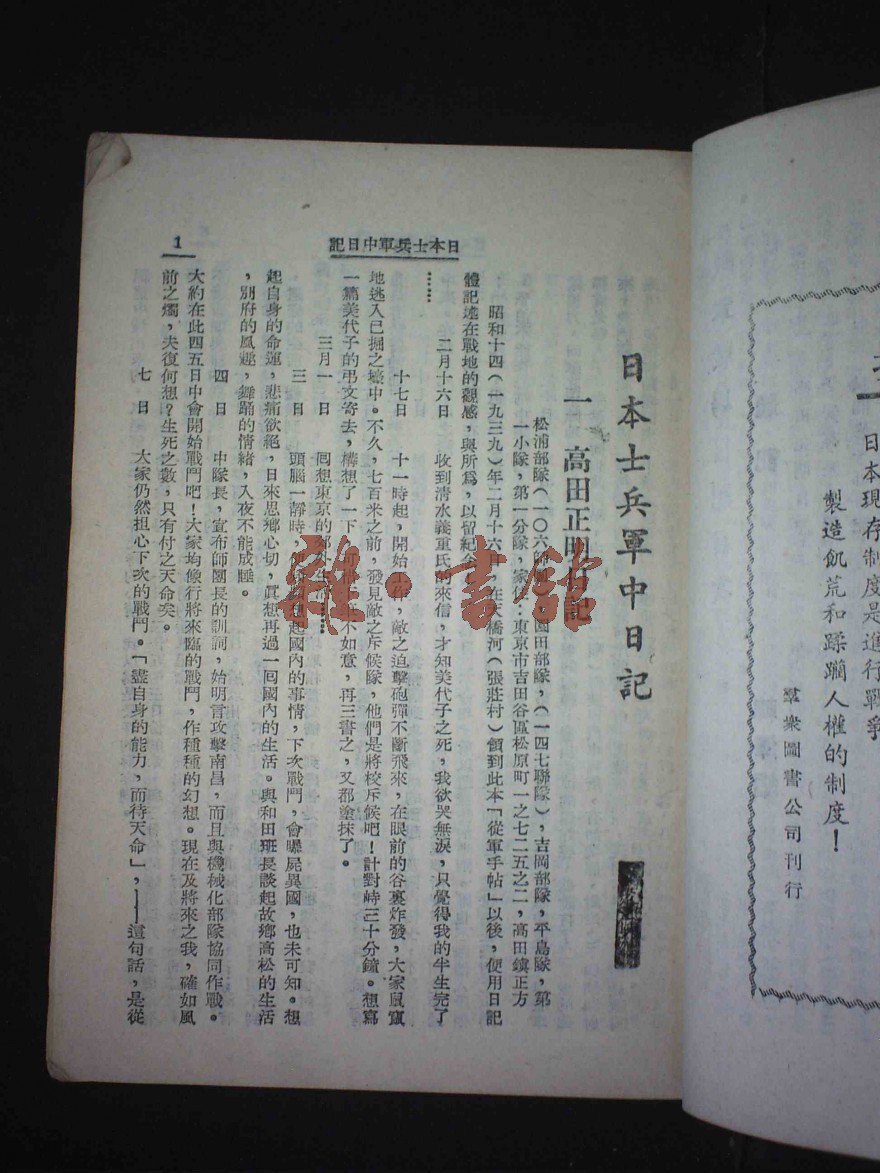 日本現存制度是進行戰爭
製造飢荒和蹂躪人權的制度！
羣衆圖書公司刊行
日本士兵軍中日記
1
日本士兵軍中日記
一 高田正明日記
松浦部隊（一〇六師團），園田部隊，（一四七聯隊），吉岡部隊，平島隊，第
一小隊，第一分隊，家住：東京市吉田谷區松原町一之七二五之二，高田鎮正方
昭和十四（一九三九）年二月十六日，在天橋河（張莊村）領到此本「從軍手帖」以後，便用日記
體記述在戰地的觀感，與所爲，以留紀念
二月十六日 收到清水義重氏的來信，才知美代子之死，我欲哭無淚，只覺得我的半生完了
……
十七日 十一時起，開始工作，敵之迫擊砲彈不斷飛來，在眼前的谷裏炸發，大家鼠竄
地逃入已掘之壕中。不久，七百米之前，發見敵之斥候隊，他們是將校斥候吧！計對峙三十分鐘。想寫
一篇美代子的弔文寄去，構想了一下，不如意，再三書之，又都塗抹了。
三月一日 囘想東京的……
三日 頭腦一靜時，想起國內的事情，下次戰鬥，會曝屍異國，也未可知。想
起自身的命運，悲痛欲絕，日來思鄉心切，眞想再過一囘國內的生活。與和田班長談起故鄉高松的生活
，別府的風趣，舞踊的情緒，入夜不能成睡。
四日 中隊長，宣布師團長的訓詞，始明言攻擊南昌，而且與機械化部隊協同作戰。
大約在此四五日中會開始戰鬥吧！大家均候行將來臨的戰鬥，作種種的幻想。現在及將來之我，確如風
前之燭，夫復何想？生死之數，只有付之天命矣。
七日 大家仍然担心下次的戰鬥。「盡自身的能力，而待天命」，——這句話，是從
雜·書館